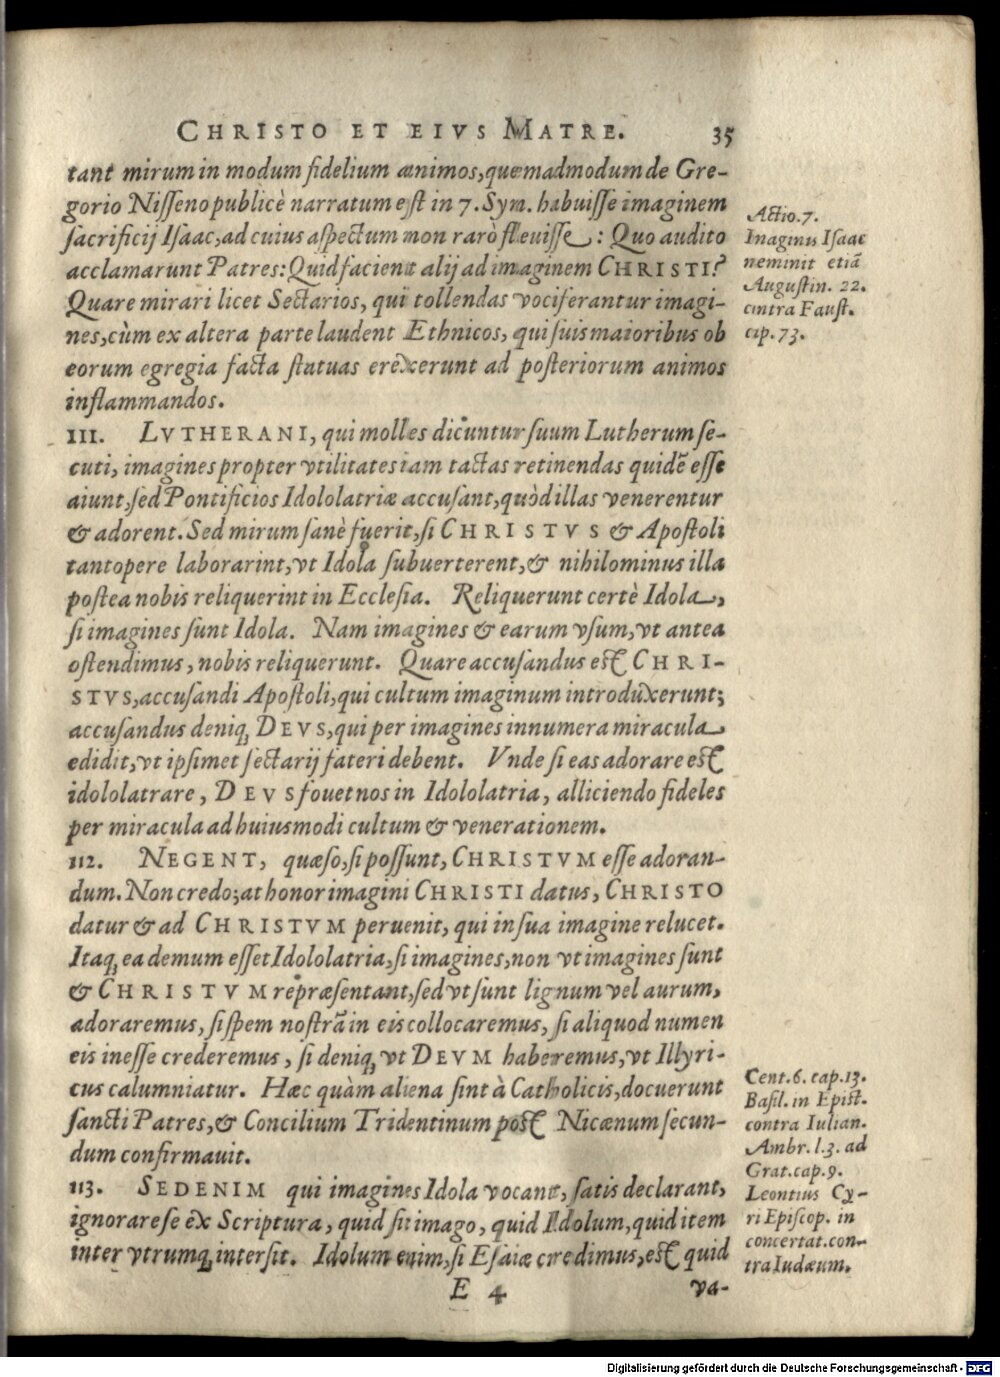 CHRISTO ET EIVS MATRE. 35
tant mirum in modum fidelium animos, quemadmodum de Gre-
gorio Nisseno publicè narratum est in 7. Syn. habuisse imaginem
sacrificij Isaac, ad cuius aspectum non rarò flevisse: Quo audito
acclamarunt Patres: Quid facient alij ad imaginem CHRISTI?
Quare mirari licet Sectarios, qui tollendas vociferantur imagi-
nes, cùm ex altera parte laudent Ethnicos, qui suis maioribus ob
eorum egregia facta statuas erexerunt ad posteriorum animos
inflammandos.
Actio. 7.
Imaginis Isaac
meminit etiā
Augustin. 22.
contra Faust.
cap. 73.
111. LVTHERANI, qui molles dicuntur suum Lutherum se-
cuti, imagines propter vtilitates iam tactas retinendas quidē esse
aiunt, sed Pontificios Idololatriæ accusant, quòd illas venerentur
& adorent. Sed mirum sanè fuerit, si CHRISTVS & Apostoli
tantopere laborarint, vt Idola subuerterent, & nihilominus illa
postea nobis reliquerint in Ecclesia. Reliquerunt certè Idola,
si imagines sunt Idola. Nam imagines & earum vsum, vt antea
ostendimus, nobis reliquerunt. Quare accusandus est CHRI-
STVS, accusandi Apostoli, qui cultum imaginum introduxerunt;
accusandus deniq; DEVS, qui per imagines innumera miracula
edidit, vt ipsimet sectarij fateri debent. Vnde si eas adorare est
idololatrare, DEVS fouet nos in Idololatria, alliciendo fideles
per miracula ad huiusmodi cultum & venerationem.
112. NEGENT, quæso, si possunt, CHRISTVM esse adoran-
dum. Non credo; at honor imagini CHRISTI datus, CHRISTO
datur & ad CHRISTVM peruenit, qui in sua imagine relucet.
Itaq; ea demum esset Idololatria, si imagines, non vt imagines sunt
& CHRISTVM repræsentant, sed vt sunt lignum vel aurum,
adoraremus, si spem nostrā in eis collocaremus, si aliquod numen
eis inesse crederemus, si deniq; vt DEVM haberemus, vt Illyri-
cus calumniatur. Hæc quàm aliena sint à Catholicis, docuerunt
sancti Patres, & Concilium Tridentinum post Nicænum secun-
dum confirmauit.
113. SEDENIM qui imagines Idola vocant, satis declarant,
ignorare se ex Scriptura, quid sit imago, quid Idolum, quid item
inter vtrumq; intersit. Idolum enim, si Esaiæ credimus, est quid
Cent. 6. cap. 13.
Basil. in Epist.
contra Iulian.
Ambr. l. 3. ad
Grat. cap. 9.
Leontius Cy-
ri Episcop. in
concertat. con-
tra Iudæum.
E 4 va-
Digitalisierung gefördert durch die Deutsche Forschungsgemeinschaft - DFG